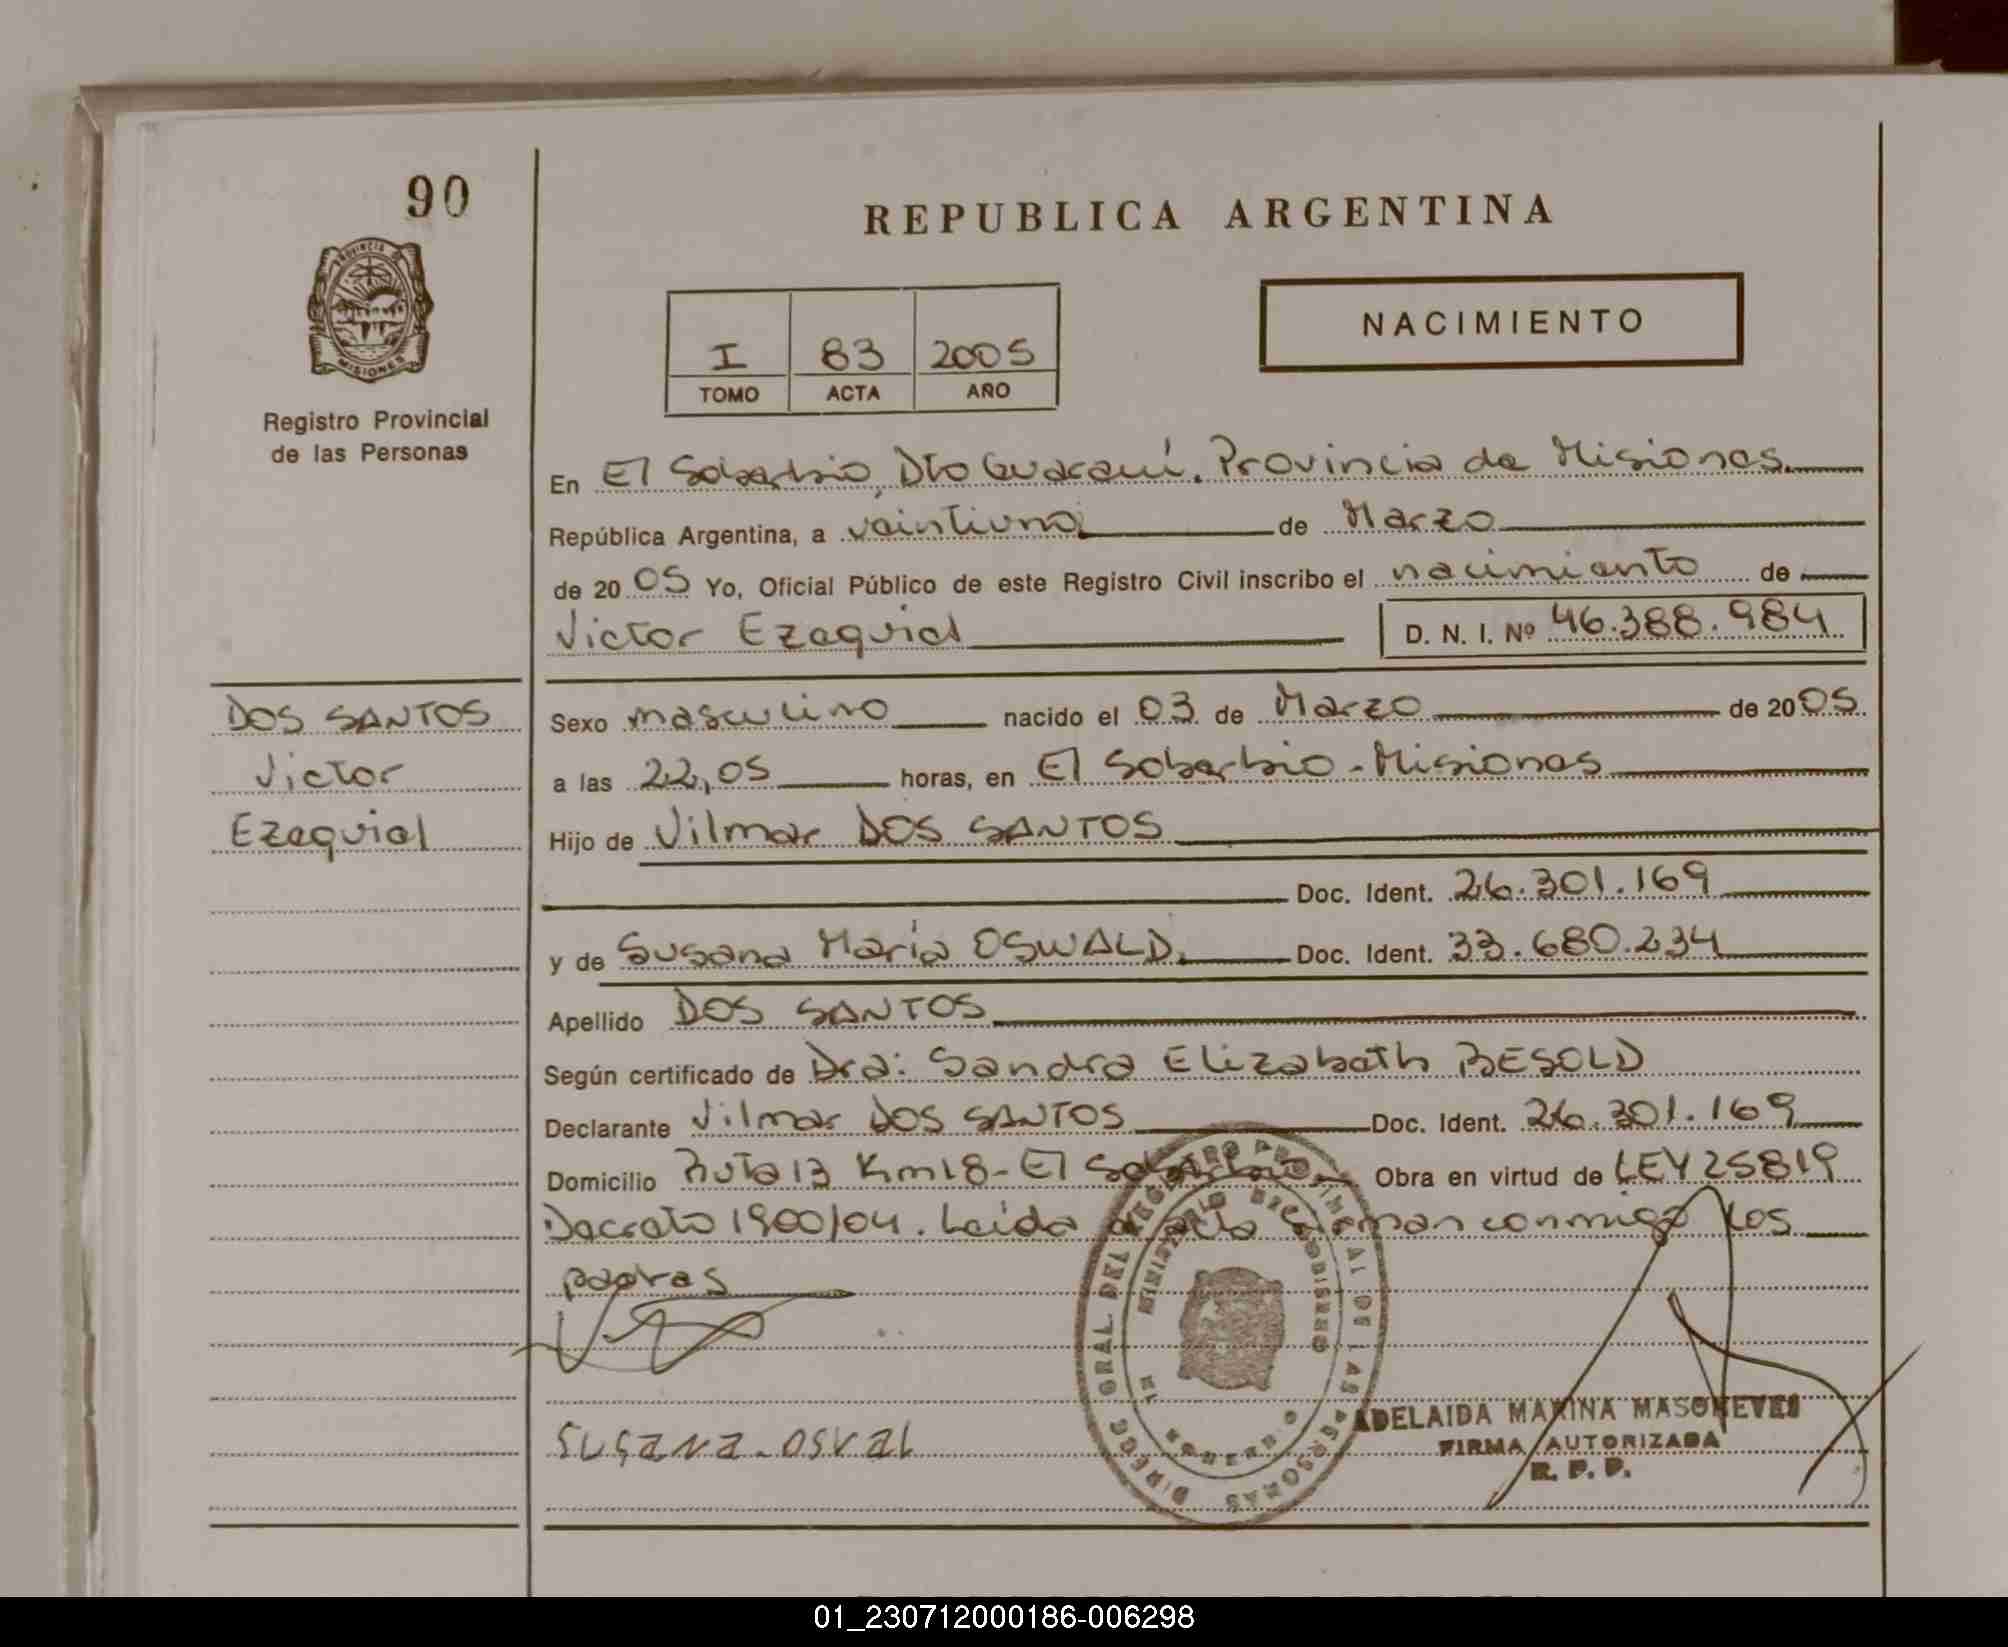 90
REPUBLICA ARGENTINA
PROVINCIA DE
MISIONES
Registro Provincial
de las Personas
I 83 2005
TOMO ACTA AÑO
NACIMIENTO
En El Soberbio, Dto Guaraní. Provincia de Misiones.
República Argentina, a veintiuno de Marzo
de 20 05 Yo, Oficial Público de este Registro Civil inscribo el nacimiento de
Victor Ezequiel D. N. I. Nº 46.388.984
DOS SANTOS
Victor
Ezequiel
Sexo masculino nacido el 03 de Marzo de 20 05
a las 22,05 horas, en El Soberbio - Misiones
Hijo de Vilmar DOS SANTOS
Doc. Ident. 26.301.169
y de Susana María OSWALD. Doc. Ident. 33.680.234
Apellido DOS SANTOS
Según certificado de Dra: Sandra Elizabeth BESOLD
Declarante Vilmar DOS SANTOS Doc. Ident. 26.301.169
Domicilio Ruta 13 Km 18 - El Soberbio Obra en virtud de LEY 25819
Decreto 1900/04. Leída el acta firman conmigo los
padres
SUSANA - OSVAL
ADELAIDA MARINA
FIRMA AUTORIZADA
R. P. P.
01_230712000186-006298